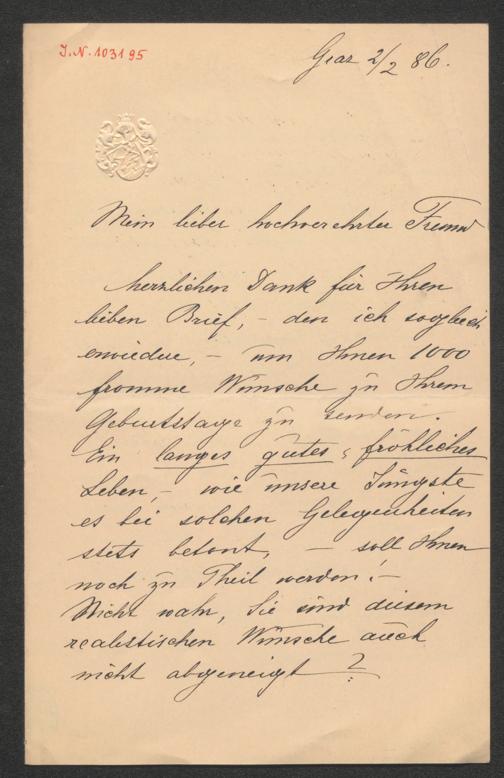 J.N. 103195
Graz 2/2 86.
Mein lieber hochverehrter Freund
herzlichen Dank für Ihren
lieben Brief, – den ich sogleich
erwiedre, – um Ihnen 1000
fromme Wünsche zu Ihrem
Geburtstage zu senden.
Ein langes gutes & fröhliches
Leben, – wie unsere Jüngste
es bei solchen Gelegenheiten
stets betont, – soll Ihnen
noch zu Theil werden! –
Nicht wahr, Sie sind diesem
realistischen Wünsche auch
nicht abgeneigt?